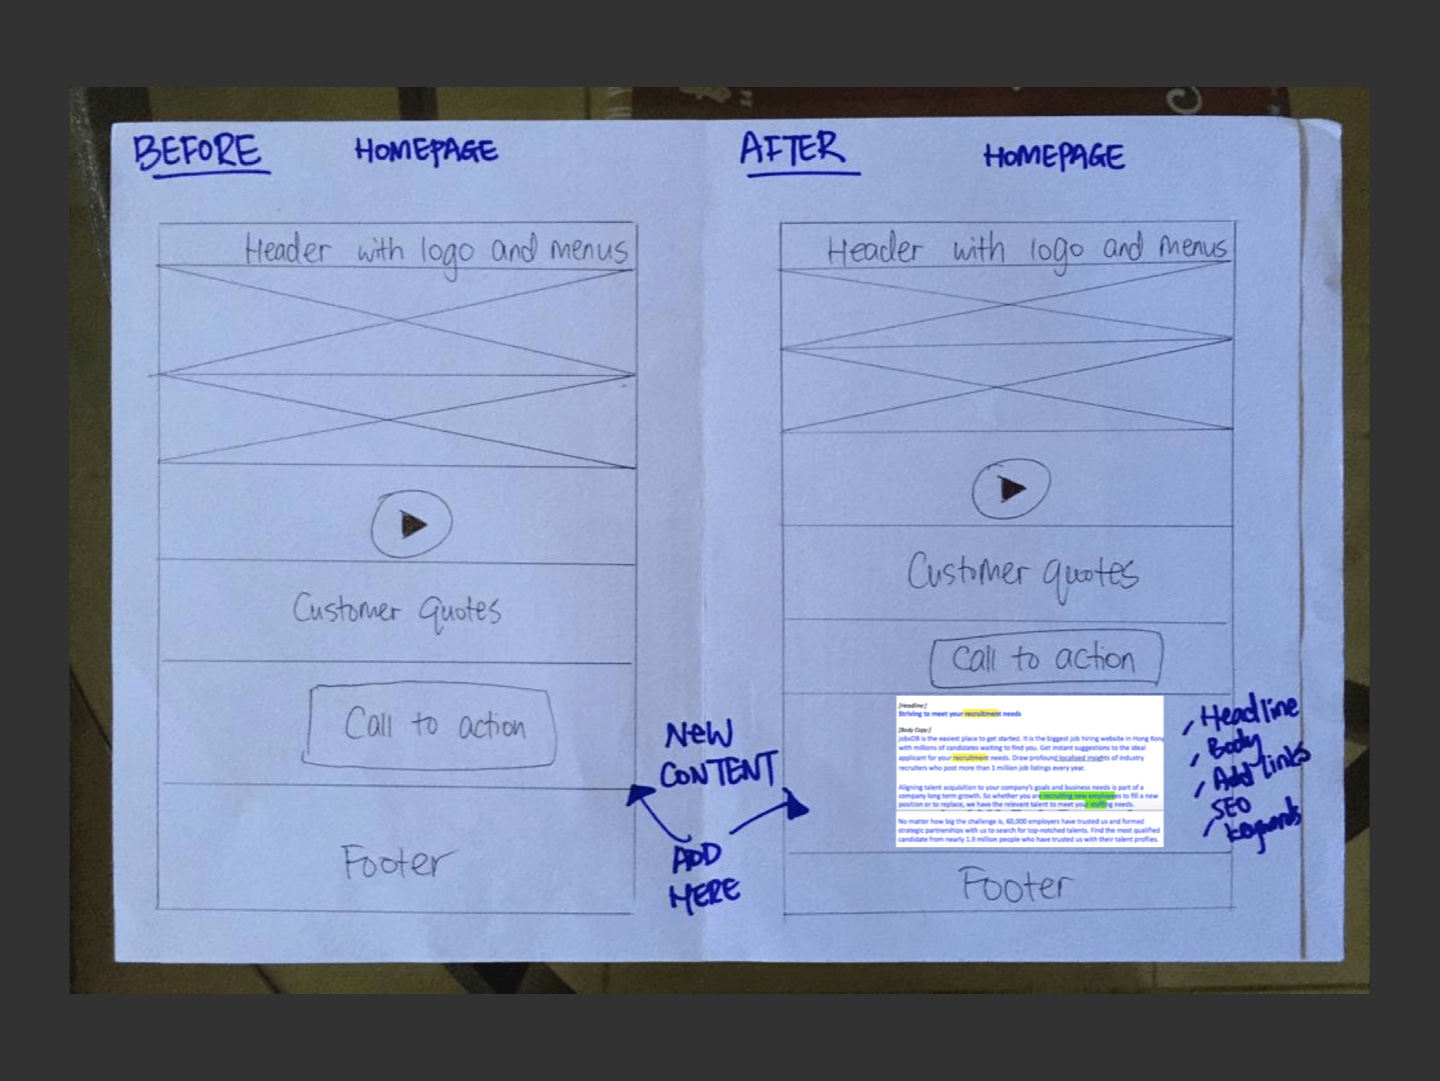 BEFORE HOMEPAGE
Header with logo and menus
Customer quotes
Call to action
Footer
NEW
CONTENT
ADD
HERE
AFTER HOMEPAGE
Header with logo and menus
Customer quotes
Call to action
[Headline:]
Striving to meet your recruitment needs
[Body Copy:]
jobsDB is the easiest place to get started. It is the biggest job hiring website in Hong Kong
with millions of candidates waiting to find you. Get instant suggestions to the ideal
applicant for your recruitment needs. Draw profound localised insights of industry
recruiters who post more than 1 million job listings every year.
Aligning talent acquisition to your company's goals and business needs is part of a
company long term growth. So whether you are recruiting new employees to fill a new
position or to replace, we have the relevant talent to meet your staffing needs.
No matter how big the challenge is, 60,000 employers have trusted us and formed
strategic partnerships with us to search for top-notched talents. Find the most qualified
candidate from nearly 1.9 million people who have trusted us with their talent profiles.
Footer
Headline
Body
Add links
SEO
keywords